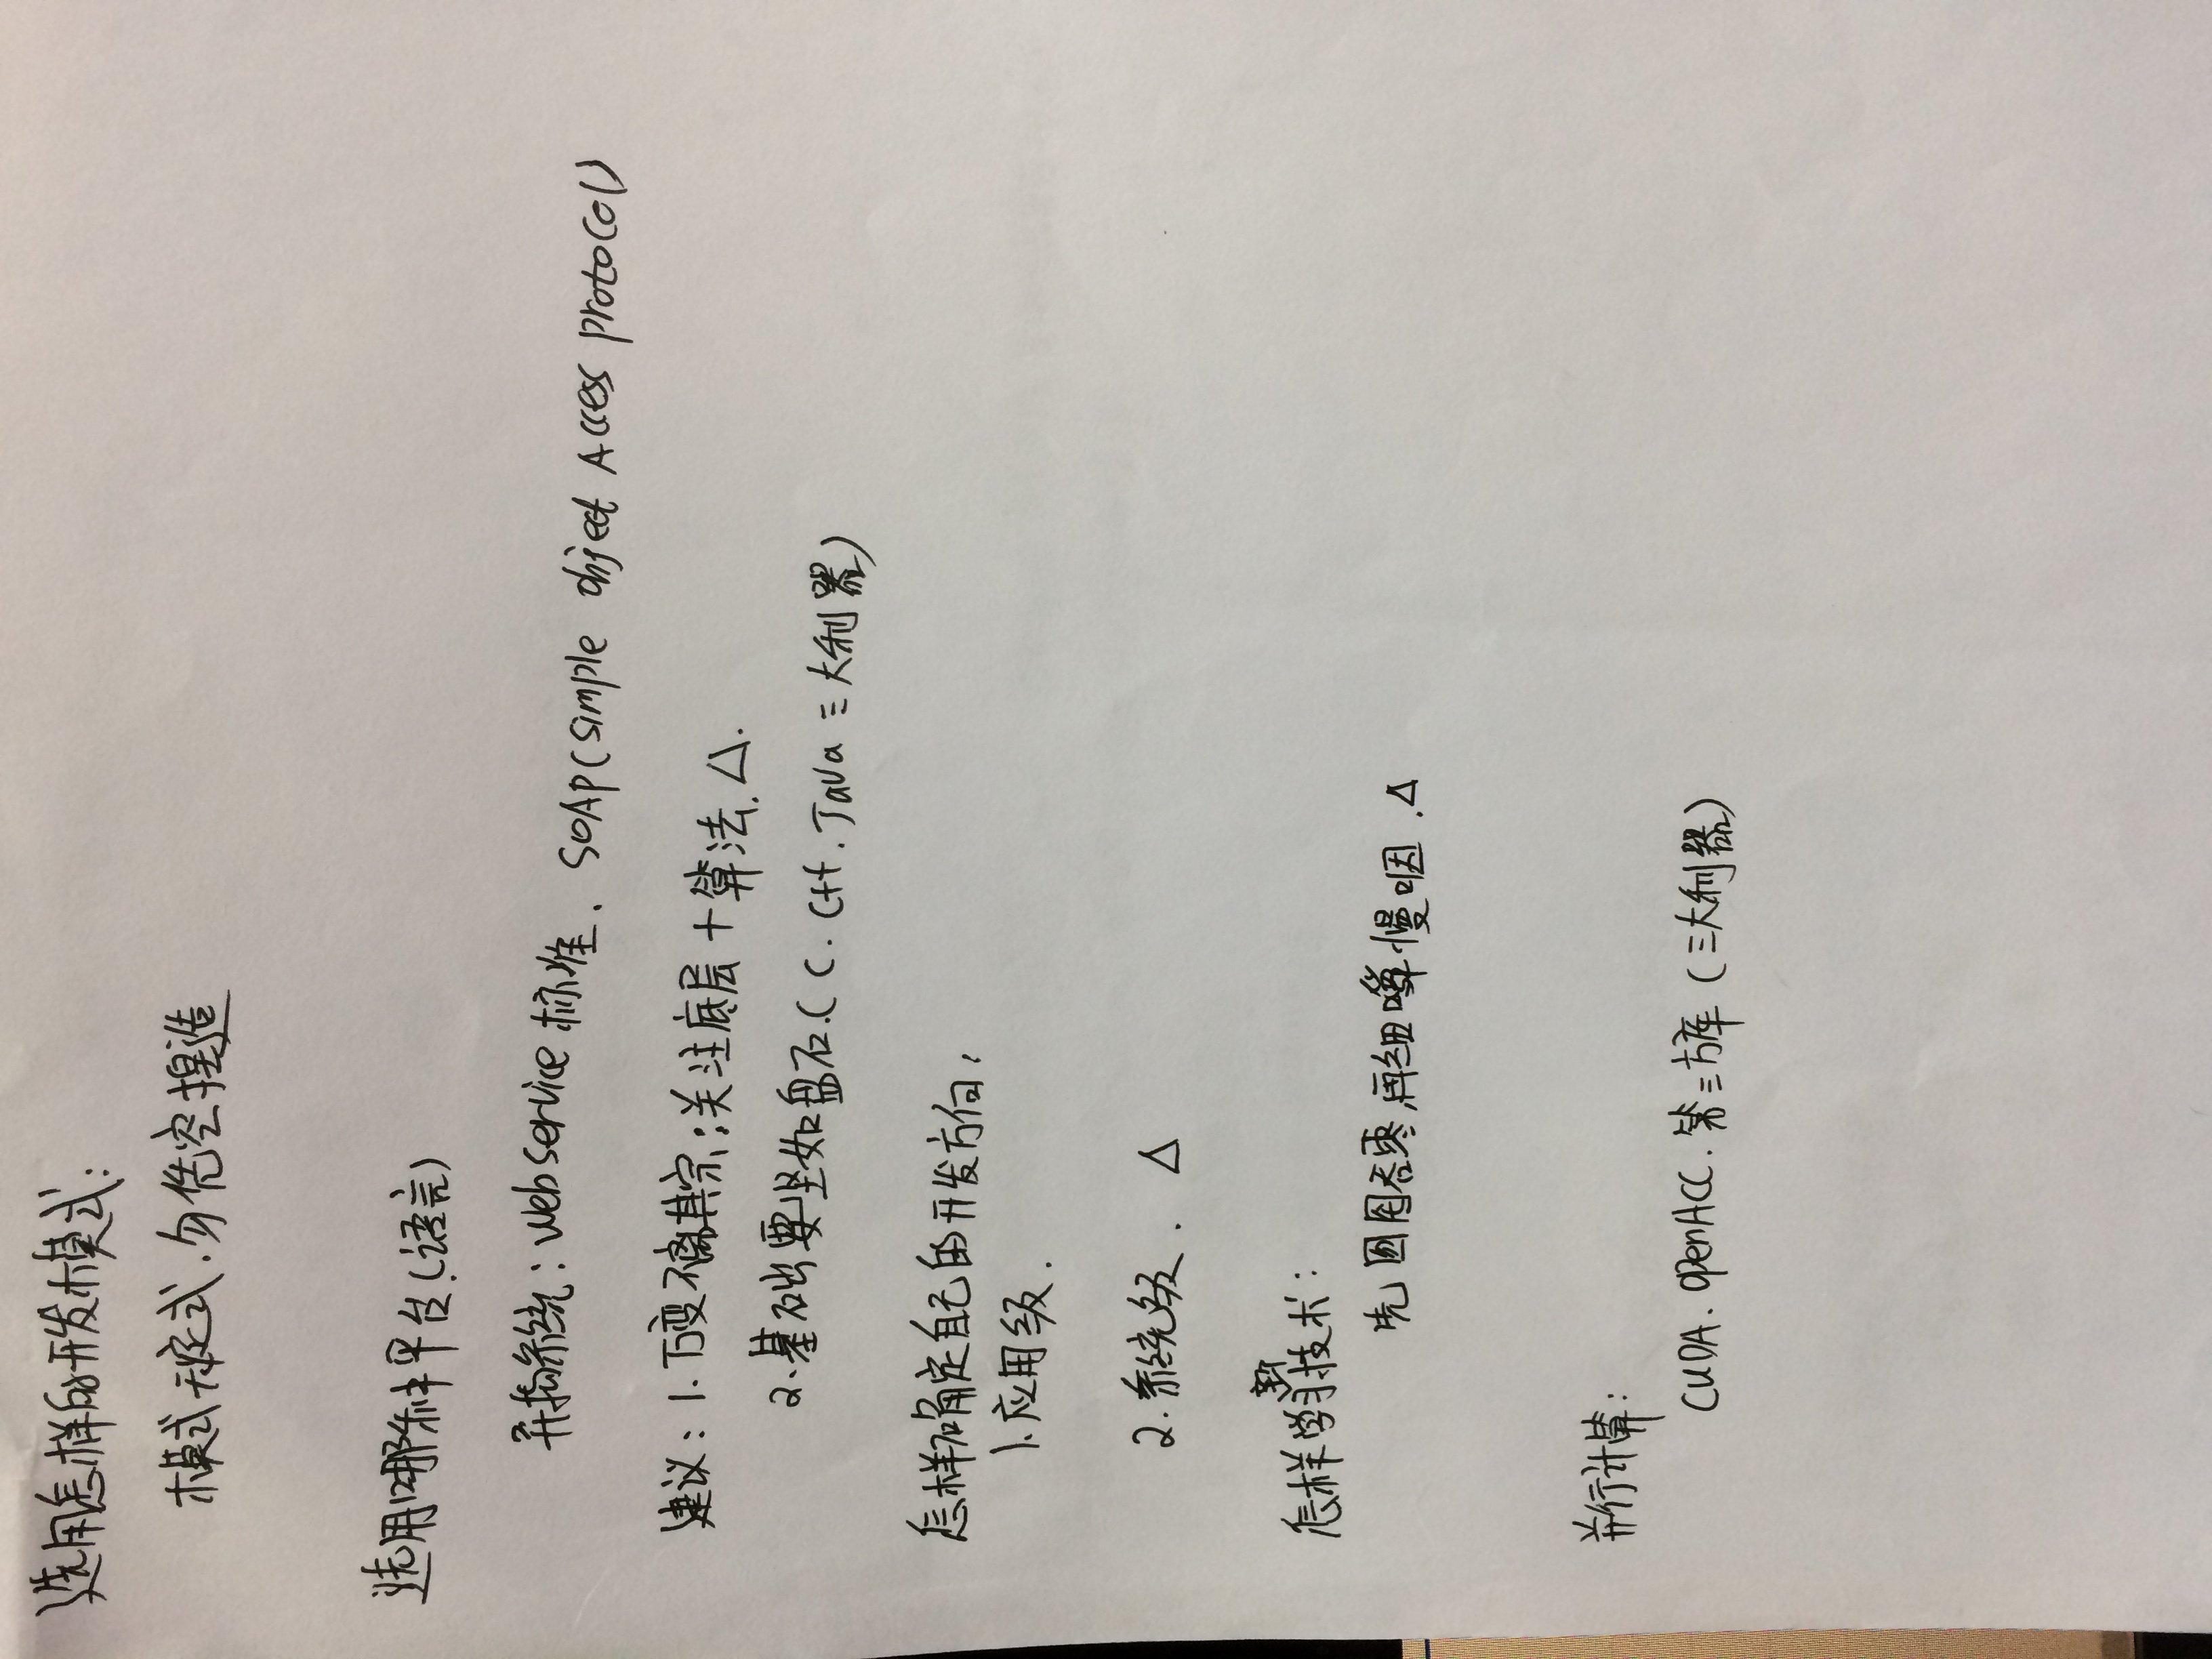 选用怎样的开发模式:
模式无定式.勿凭空捏造
选用哪种平台.(语言)
异构系统: web service 标准. SOAP(simple object Access protocol)
建议: 1. 万变不离其宗;关注底层+算法.△.
2.基础要坚如盘石.(C. C++. Java 三大利器)
怎样确定自己的开发方向,
1.应用级.
2.系统级. △
怎样学习新技术:
先囫囵吞枣,再细嚼慢咽.△
并行计算:
CUDA. OpenACC. 第三方库(三大利器)